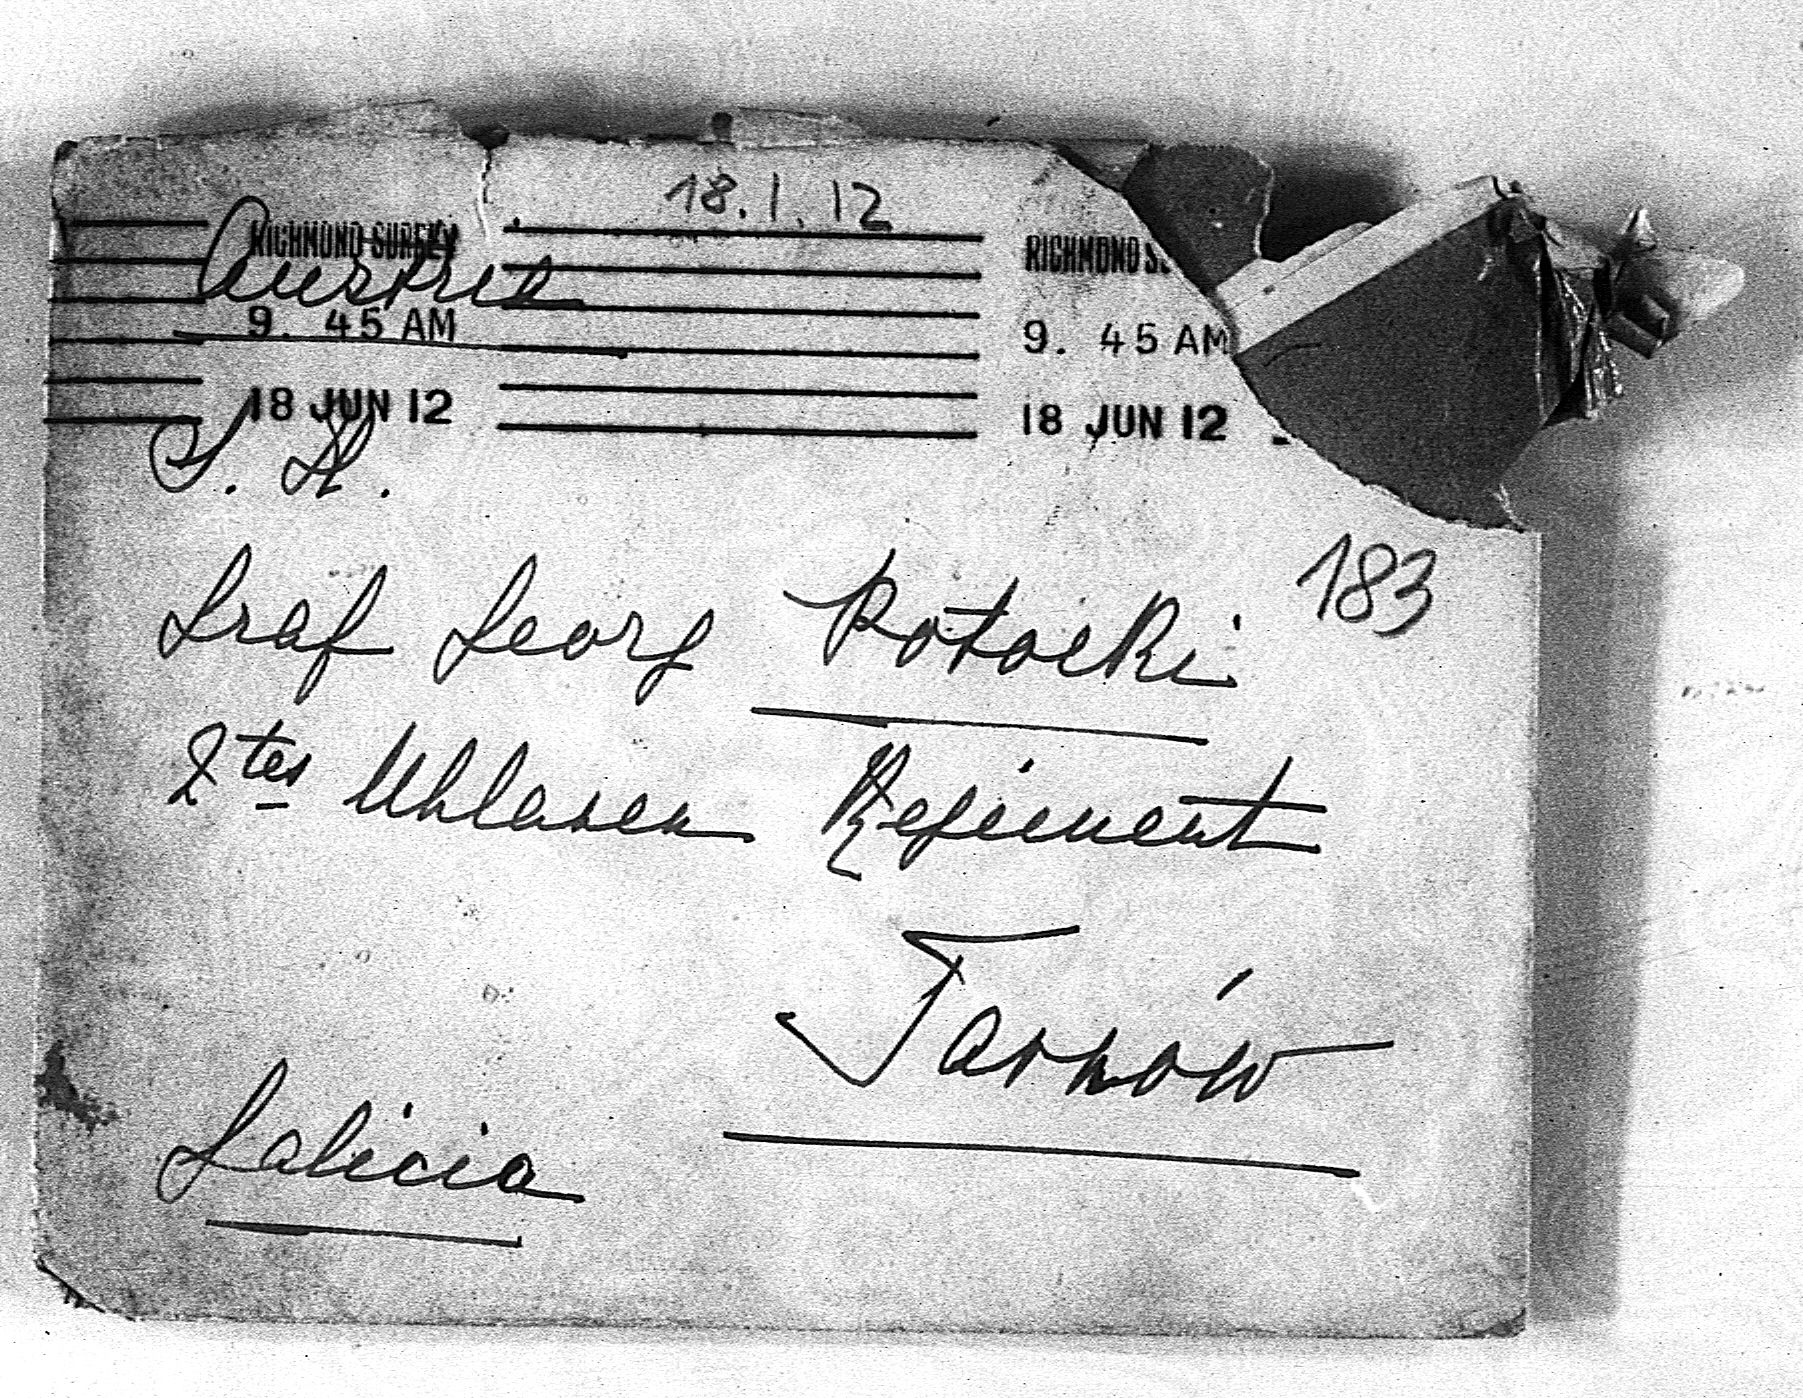 18.1.12
RICHMOND SURREY RICHMOND S
Austria
9. 45 AM 9. 45 AM
18 JUN 12 18 JUN 12
S. H.
183
Graf Georg Potocki
2tes Uhlanen Regiment
Tarnów
Galicia